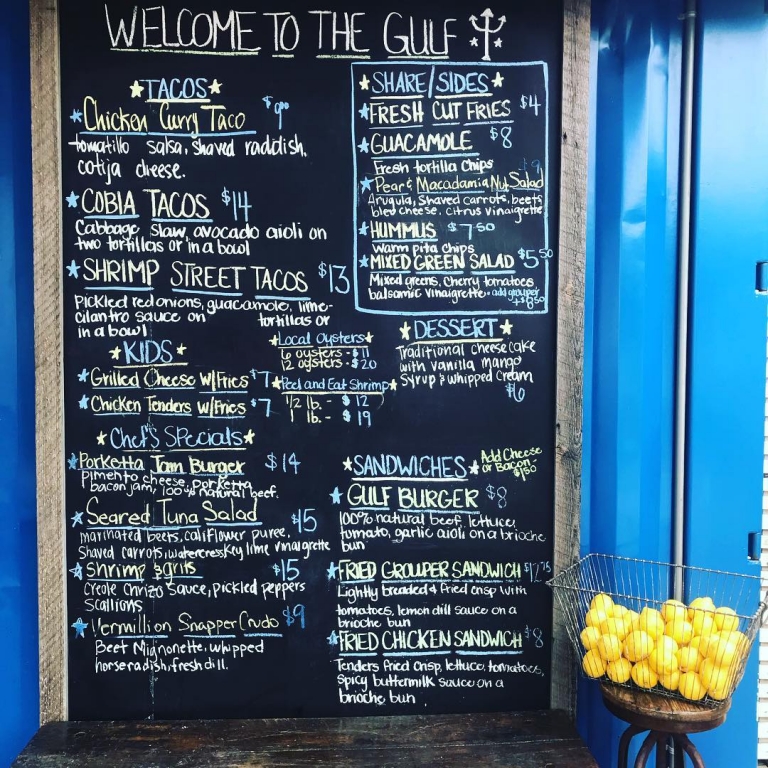 WELCOME TO THE GULF
TACOS
Chicken Curry Taco $9.00
tomatillo salsa, shaved raddish,
cotija cheese.
COBIA TACOS $14
Cabbage, slaw, avocado aioli on
two tortillas or in a bowl
SHRIMP STREET TACOS $13
Pickled red onions, guacamole, lime-
cilantro sauce on tortillas or
in a bowl
KIDS
Grilled Cheese w/Fries $7
Chicken Tenders w/Fries $7
Local Oysters
6 oysters - $11
12 oysters - $20
Peel and Eat Shrimp
1/2 lb. - $12
1 lb. - $19
Chef's Specials
Porketta Jam Burger $14
Pimento cheese, porketta
bacon jam, 100% natural beef.
Seared Tuna Salad $15
marinated beets, califlower puree,
Shaved carrots, watercress, Key lime vinaigrette
Shrimp & grits $15
Creole chrizo sauce, pickled peppers
Scallions
Vermillion Snapper Crudo $9
Beet Mignonette, whipped
horseradish, fresh dill.
SHARE/SIDES
FRESH CUT FRIES $4
GUACAMOLE $8
Fresh tortilla chips
Pear & Macadamia Nut Salad $9
Arugula, Shaved carrots, beets
bleu cheese, citrus vinaigrette
HUMMUS $7.50
warm pita chips
MIXED GREEN SALAD $5.50
Mixed greens, cherry tomatoes
balsamic vinaigrette • add grouper
DESSERT
Traditional cheesecake
with vanilla mango
Syrup & whipped cream
$6
SANDWICHES
Add Cheese
or Bacon -
$1.50
GULF BURGER $8
100% natural beef, lettuce,
tomato, garlic aioli on a brioche
bun
FRIED GROUPER SANDWICH $12.75
Lightly breaded & fried crisp with
tomatoes, lemon dill sauce on a
brioche bun
FRIED CHICKEN SANDWICH $8
Tenders fried crisp, lettuce, tomatoes,
spicy buttermilk sauce on a
brioche bun